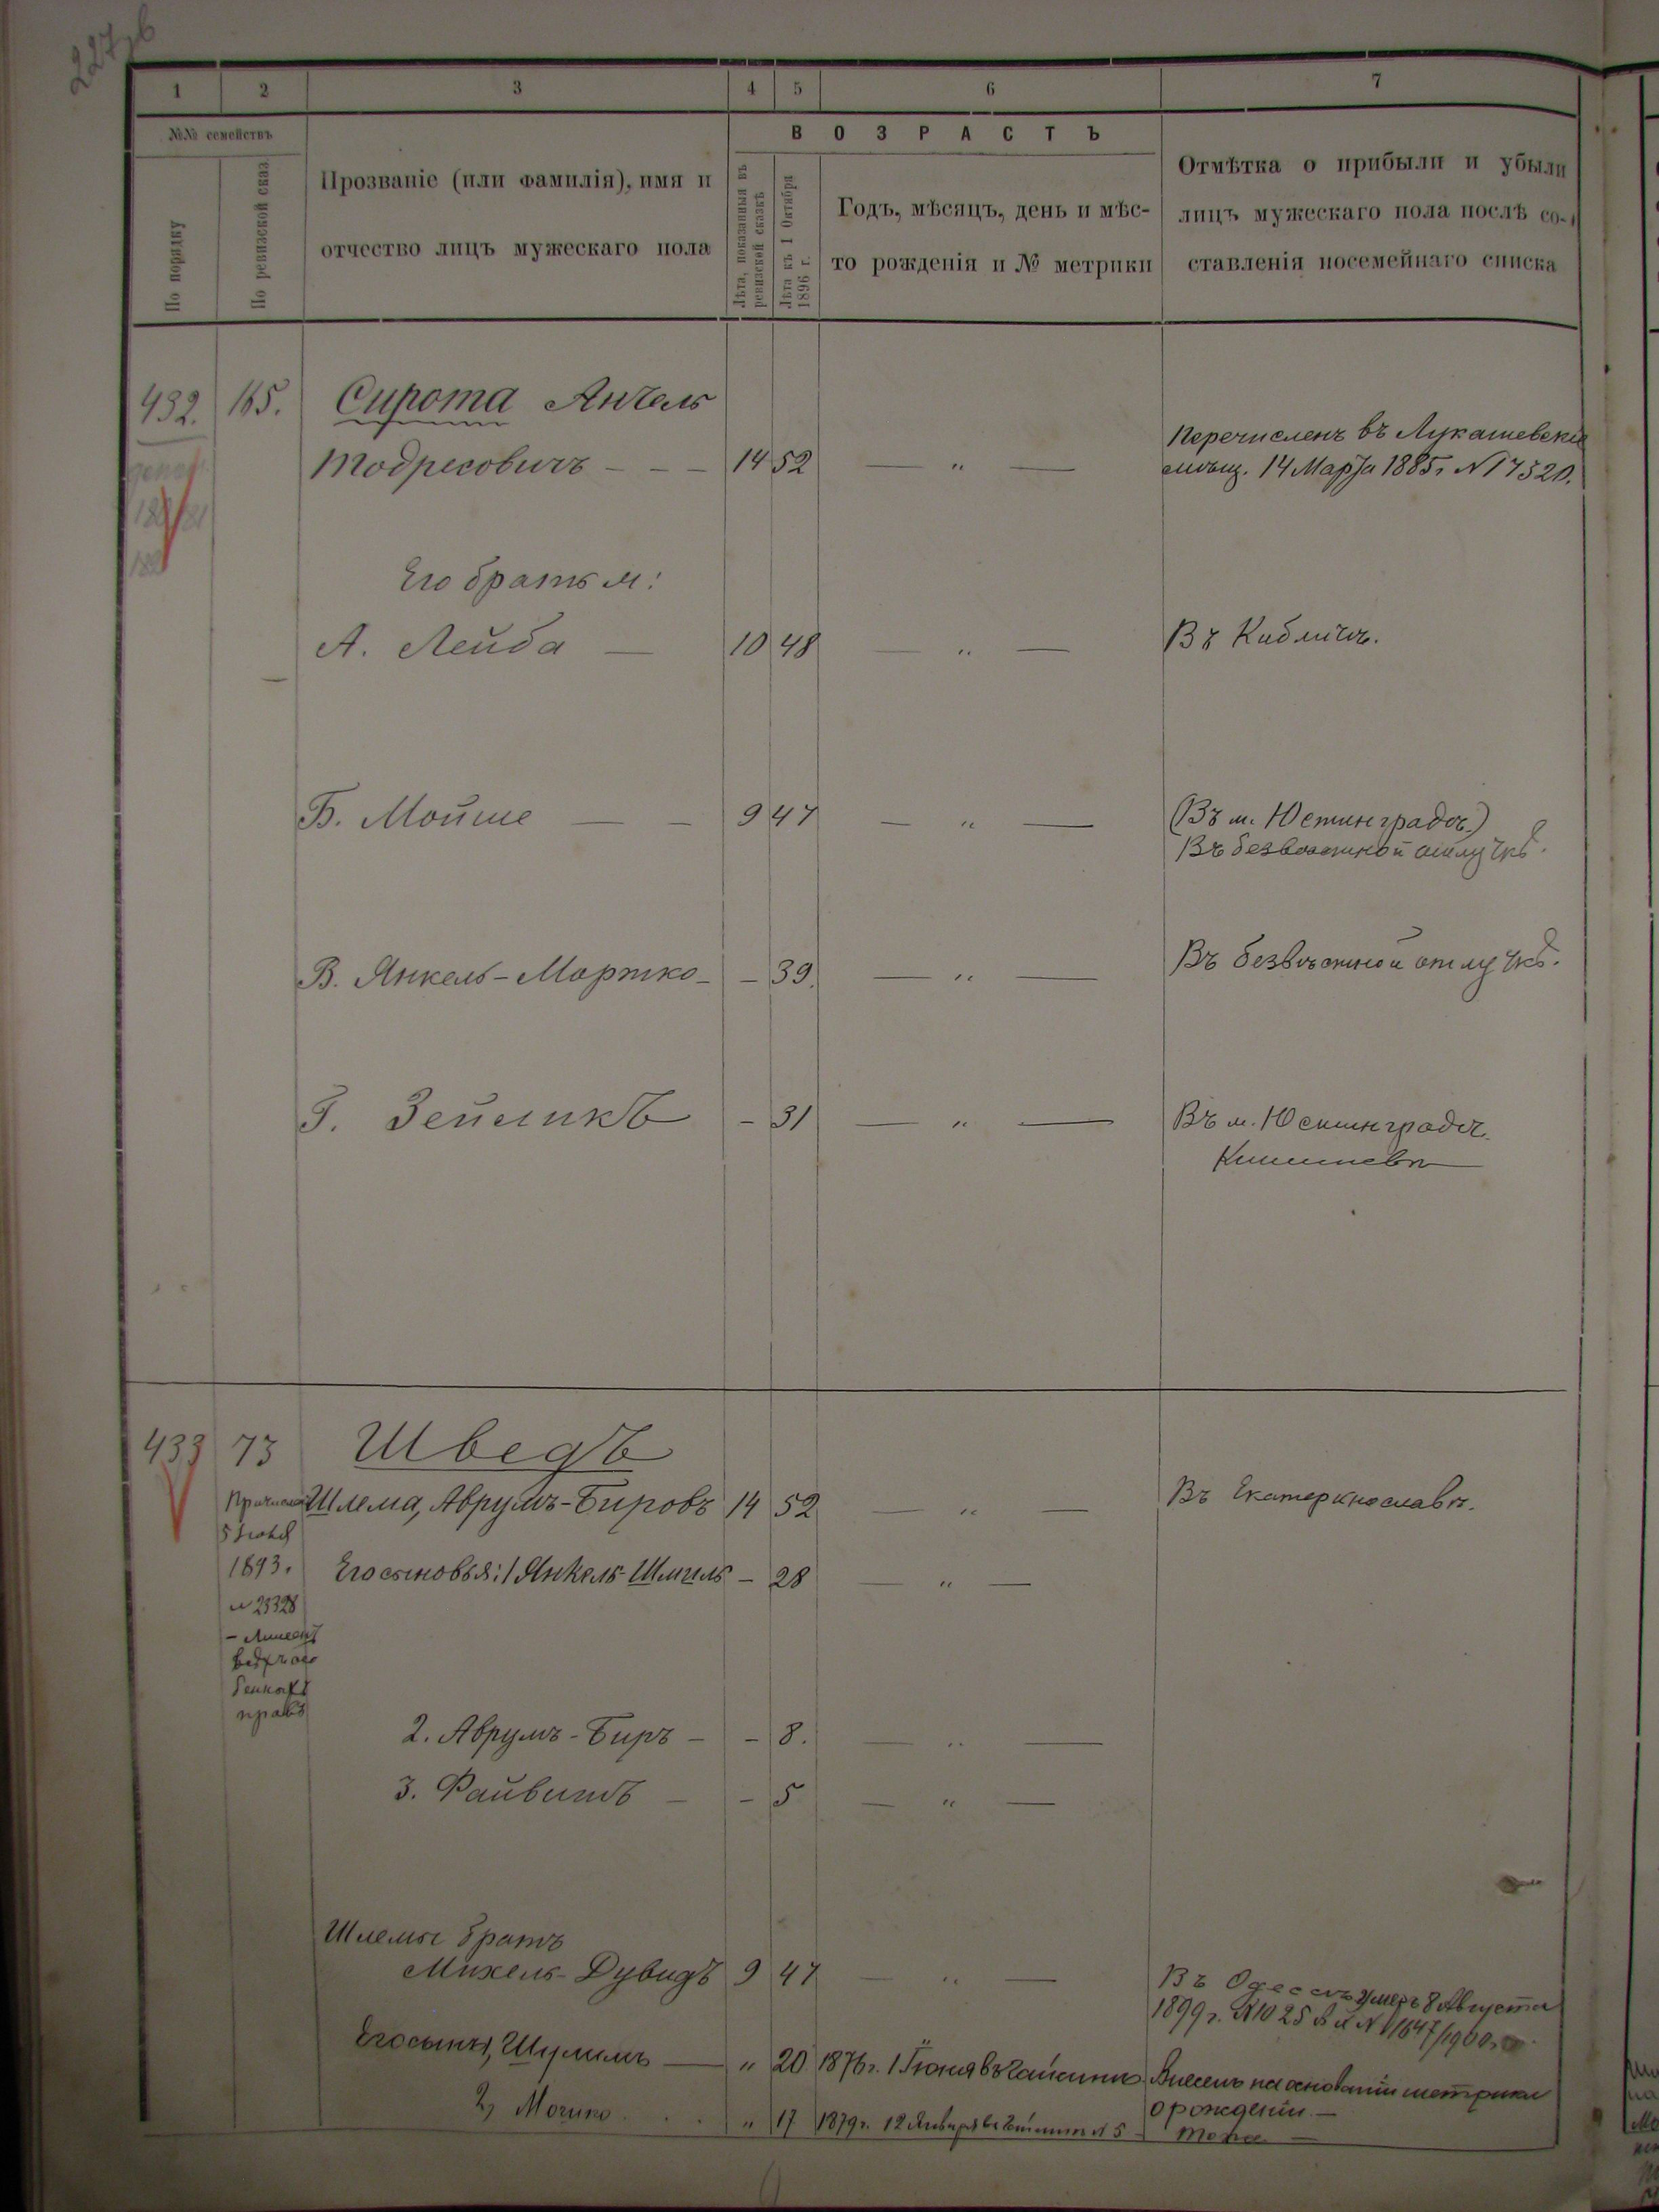 227 об
1 2 3 4 5 6 7
№№ семействъ
По порядку
По ревизской сказ.
Прозваніе (или фамилія), имя и
отчество лицъ мужескаго пола
ВОЗРАСТЪ
Лѣта, показанныя въ
ревизской сказкѣ
Лѣта къ 1 Октября
1896 г.
Годъ, мѣсяцъ, день и мѣс-
то рожденія и № метрики
Отмѣтка о прибыли и убыли
лицъ мужескаго пола послѣ со-
ставленія посемейнаго списка
432. 165. Сирота Анчель
Тодресовичъ - - - 14 52 — " —
Перечисленъ въ Лукашевскіе
мѣщ. 14 Марта 1885 г №17520.
Его братья:
А. Лейба — 10 48 — " — Въ Кибличѣ.
Б. Мойше — - 9 47 — " — (Въ м. Юстинградѣ.)
Въ безвѣстной отлучкѣ.
В. Янкель-Мортко - - 39. — " — Въ безвѣстной отлучкѣ.
Г. Зейликъ - 31 — " — Въ м. Юстинградѣ.
Кишиневѣ
433 73 Шведъ
Шлема, Аврумъ-Бировъ 14 52 — " — Въ Екатеринославѣ.
5 Іюня
1893.
№ 23328
правъ
Его сыновья: 1 Янкель-Шмиль - 28 — " —
2. Аврумъ-Биръ - - 8. — " —
3. Файвишъ - - 5 — " —
Шлемы братъ
Михель-Дувидъ 9 47 — " — Въ Одессѣ умеръ 8 Августа
1899 г. №1025 №11647/1900 г.
Его сыны, Шулимъ — " 20 1876 г. 1 Іюня въ Гайсинѣ Внесенъ на основаніи метрики
о рожденіи. —
2, Мошко . . . " 17 1879 г. 12 Января въ Гайсинѣ № 5 - тоже —